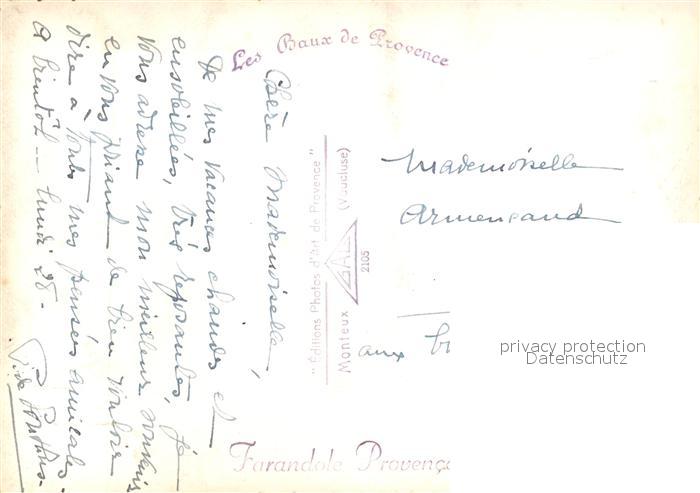 Les Baux de Provence
Chère Mademoiselle,
De mes vacances chaudes et
ensoleillées, très reposantes, je
vous adresse mon meilleur souvenir
en vous priant de bien vouloir
dire à tous mes pensées amicales.
A bientôt - lundi 28 -
"Editions Photos d'Art de Provence"
Monteux GAL (Vaucluse)
2105
Mademoiselle
Armengaud
aux
Farandole Provenç
privacy protection
Datenschutz